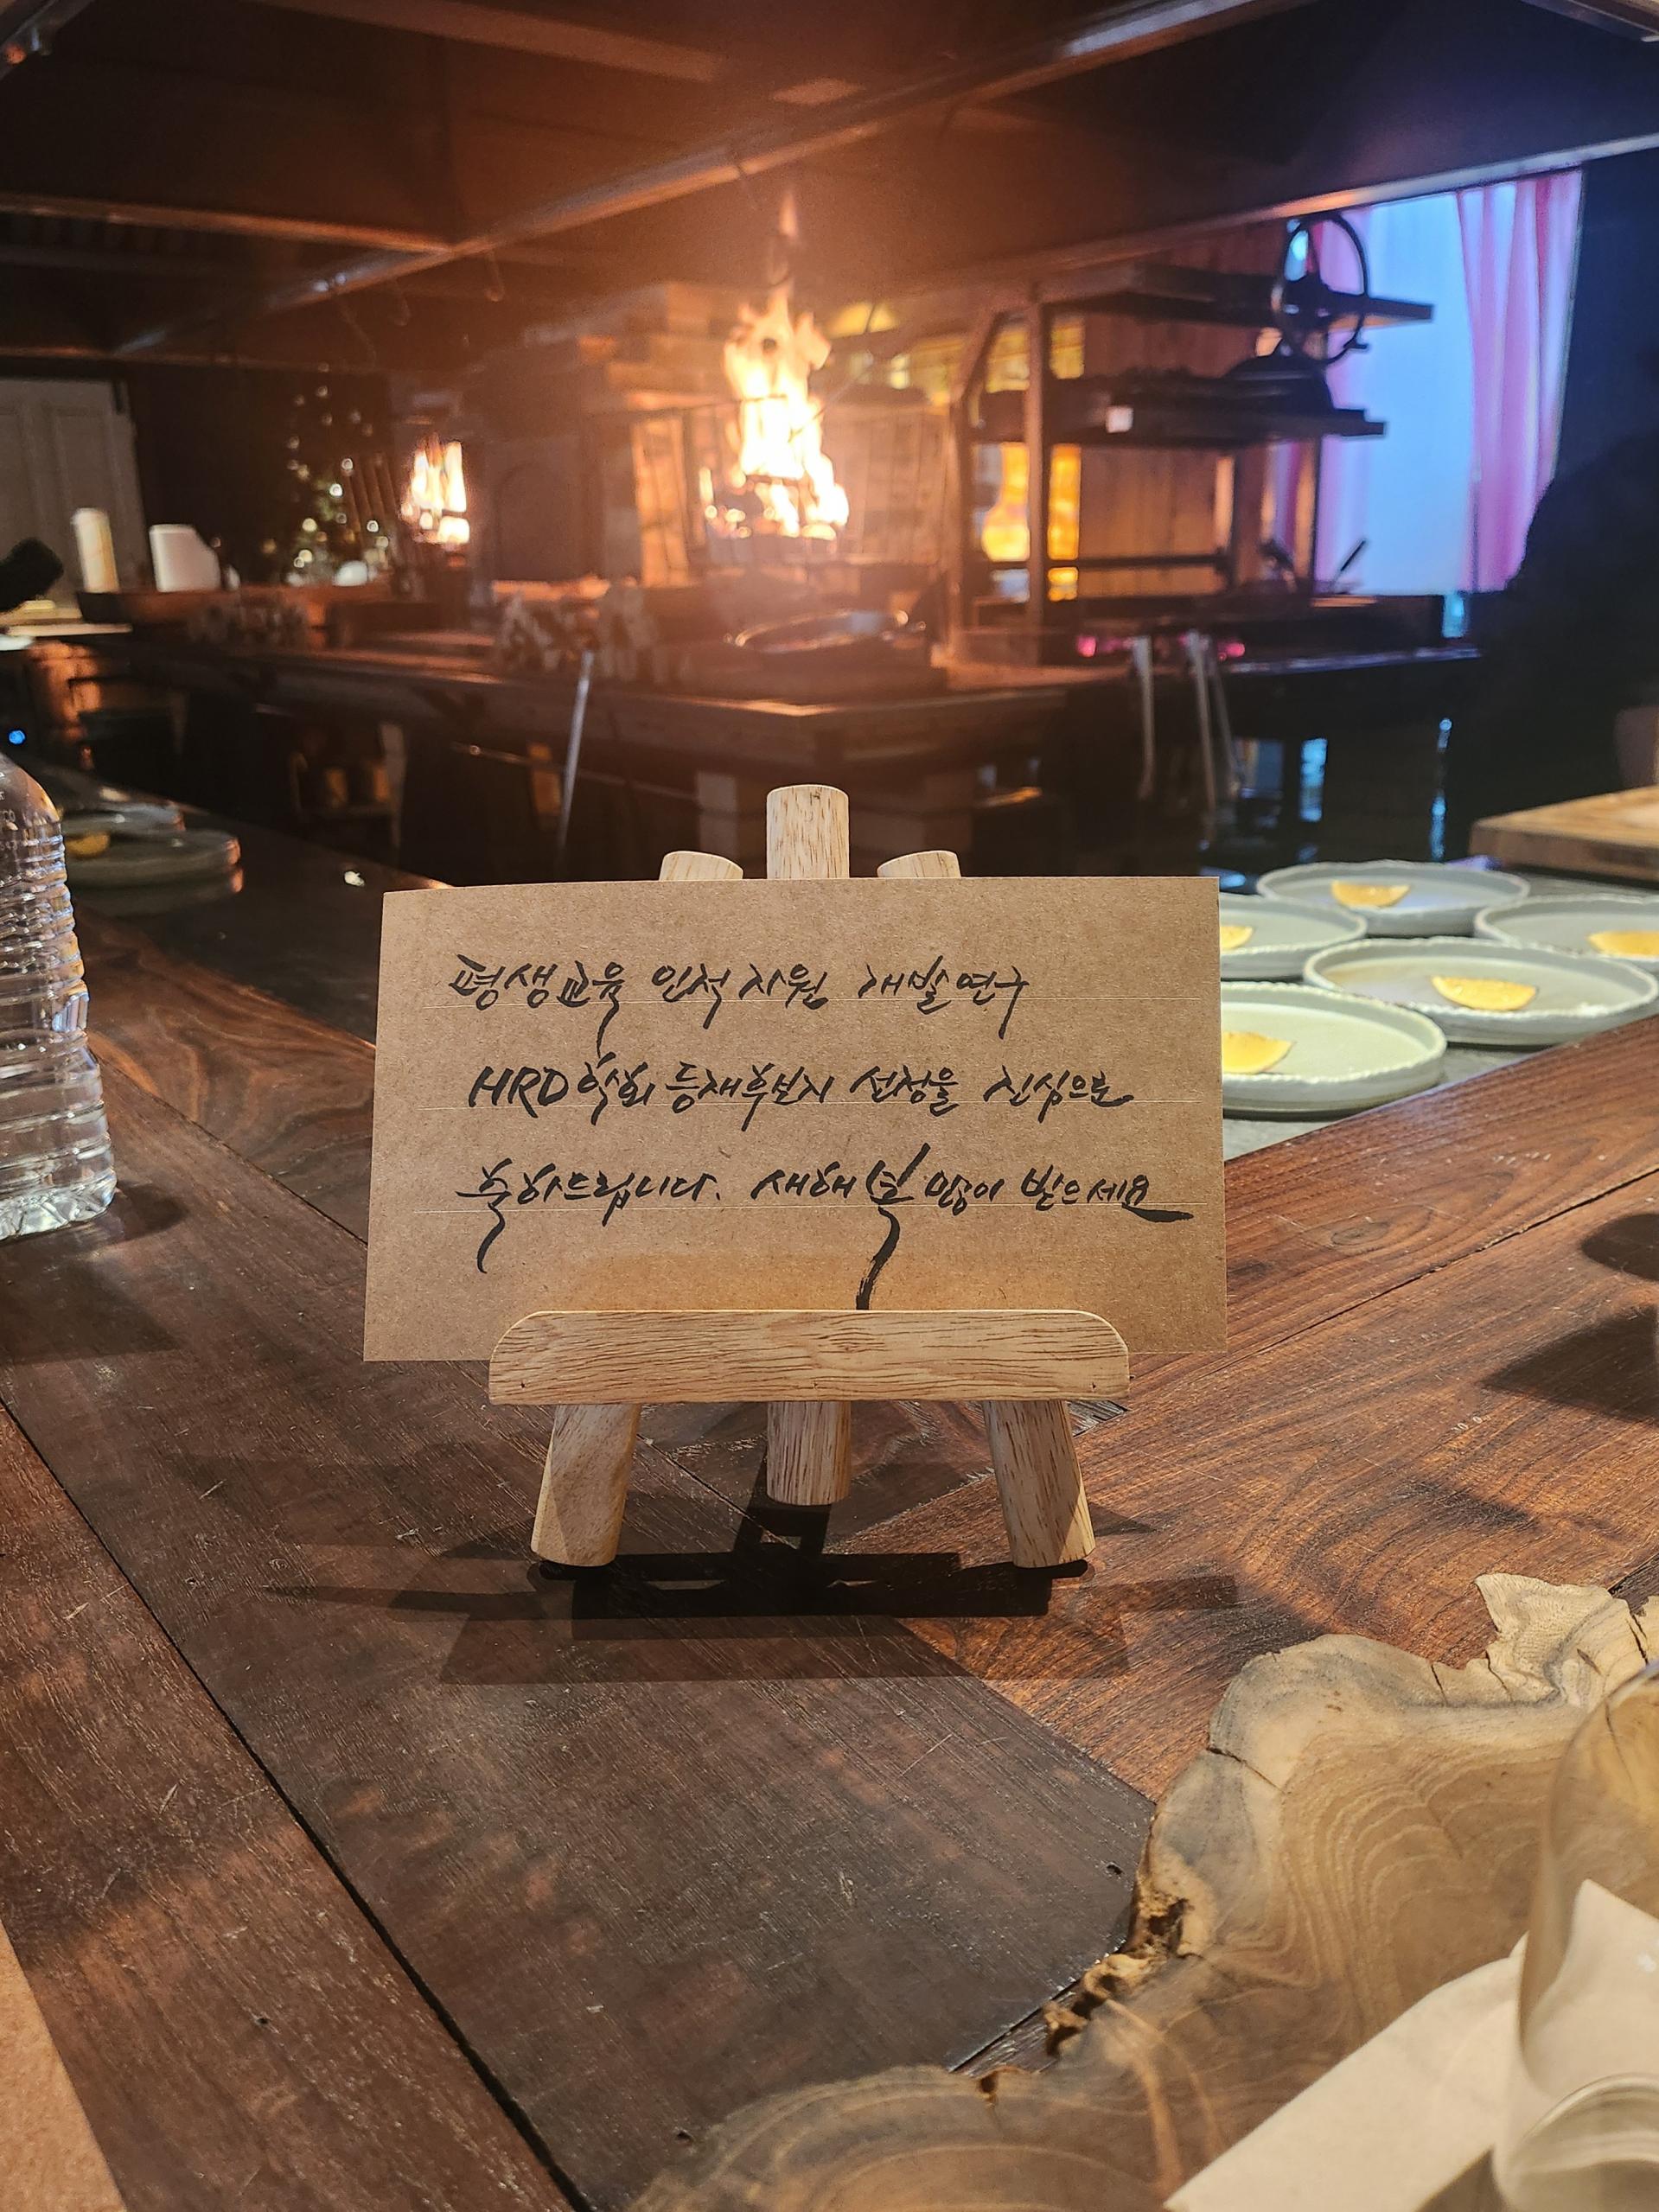 평생교육 인적자원 개발연구
HRD학회 등재후보지 선정을 진심으로
축하드립니다. 새해 복 많이 받으세요